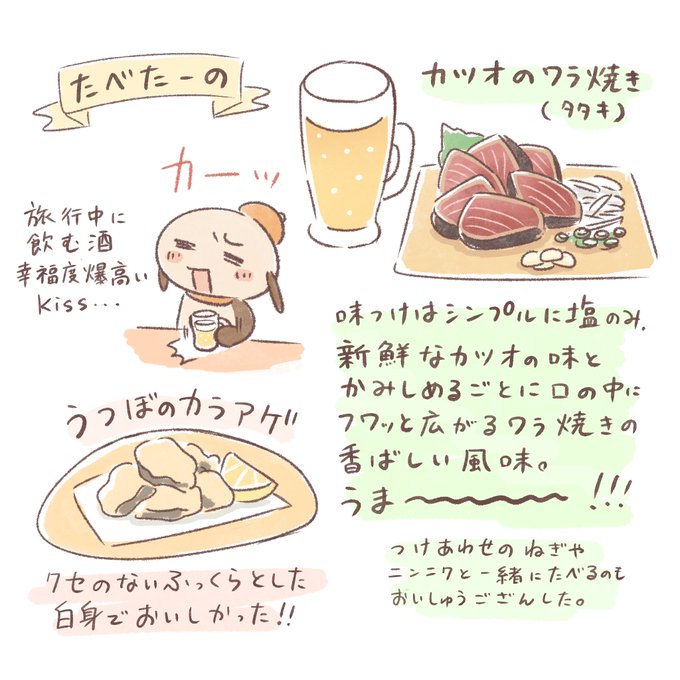 たべたーの
カツオのワラ焼き
(タタキ)
カーッ
旅行中に
飲む酒
幸福度爆高い
kiss...
味つけはシンプルに塩のみ。
新鮮なカツオの味と
かみしめるごとに口の中に
フワッと広がるワラ焼きの
香ばしい風味。
うま〜〜〜〜!!!
つけあわせのねぎや
ニンニクと一緒にたべるのも
おいしゅうござんした。
うつぼのカラアゲ
クセのないふっくらとした
白身でおいしかった!!